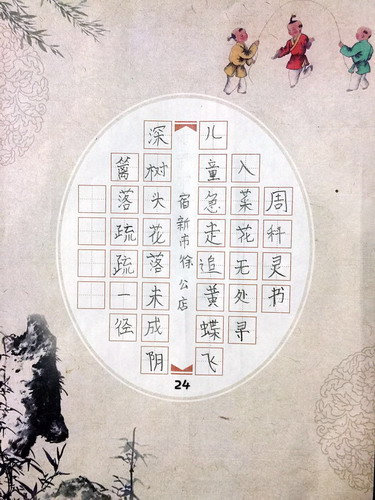 篱落疏疏一径
深树头花落未成阴
宿新市徐公店
儿童急走追黄蝶飞
入菜花无处寻
周科灵书
24